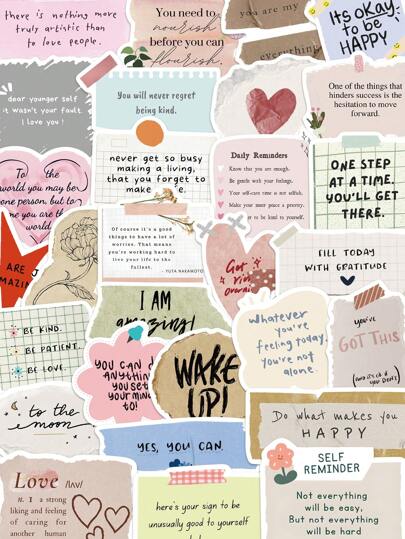 there is nothing more
truly artistic than
to love people.
You need to
nourish
before you can
flourish.
you are my
everything
ITS OKAY
to be
HAPPY
dear younger self
it wasn't your fault.
I love you!
You will never regret
being kind.
One of the things that
hinders success is the
hesitation to move
forward.
never get so busy
making a living,
that you forget to
make
Daily Reminders
Know that you are enough.
Be gentle with your feelings.
Your self-care time is not selfish.
Make your inner peace a priority.
to be kind to yourself.
ONE STEP
AT A TIME.
YOU'LL GET
THERE.
To the
world you may be
one person, but to
one you are the
world
Of course it's a good
things to have a lot of
worries. That means
you're working hard to
live your life to the
fullest.
- YUTA NAKAMOTO
FILL TODAY
WITH GRATITUDE
ARE
I AM
amazing!
BE KIND.
BE PATIENT.
BE LOVE.
YOU CAN DO
ANYTHING
YOU SET
YOUR MIND
TO!
WAKE
UP!
Whatever
you're
feeling today,
you're not
alone.
you've
GOT THIS
to the
moon
YES, YOU CAN.
Do what makes you
HAPPY
SELF
REMINDER
Not everything
will be easy,
But not everything
will be hard
Love /lʌv/
n. 1 a strong
liking and feeling
of caring for
another human
here's your sign to be
unusually good to yourself